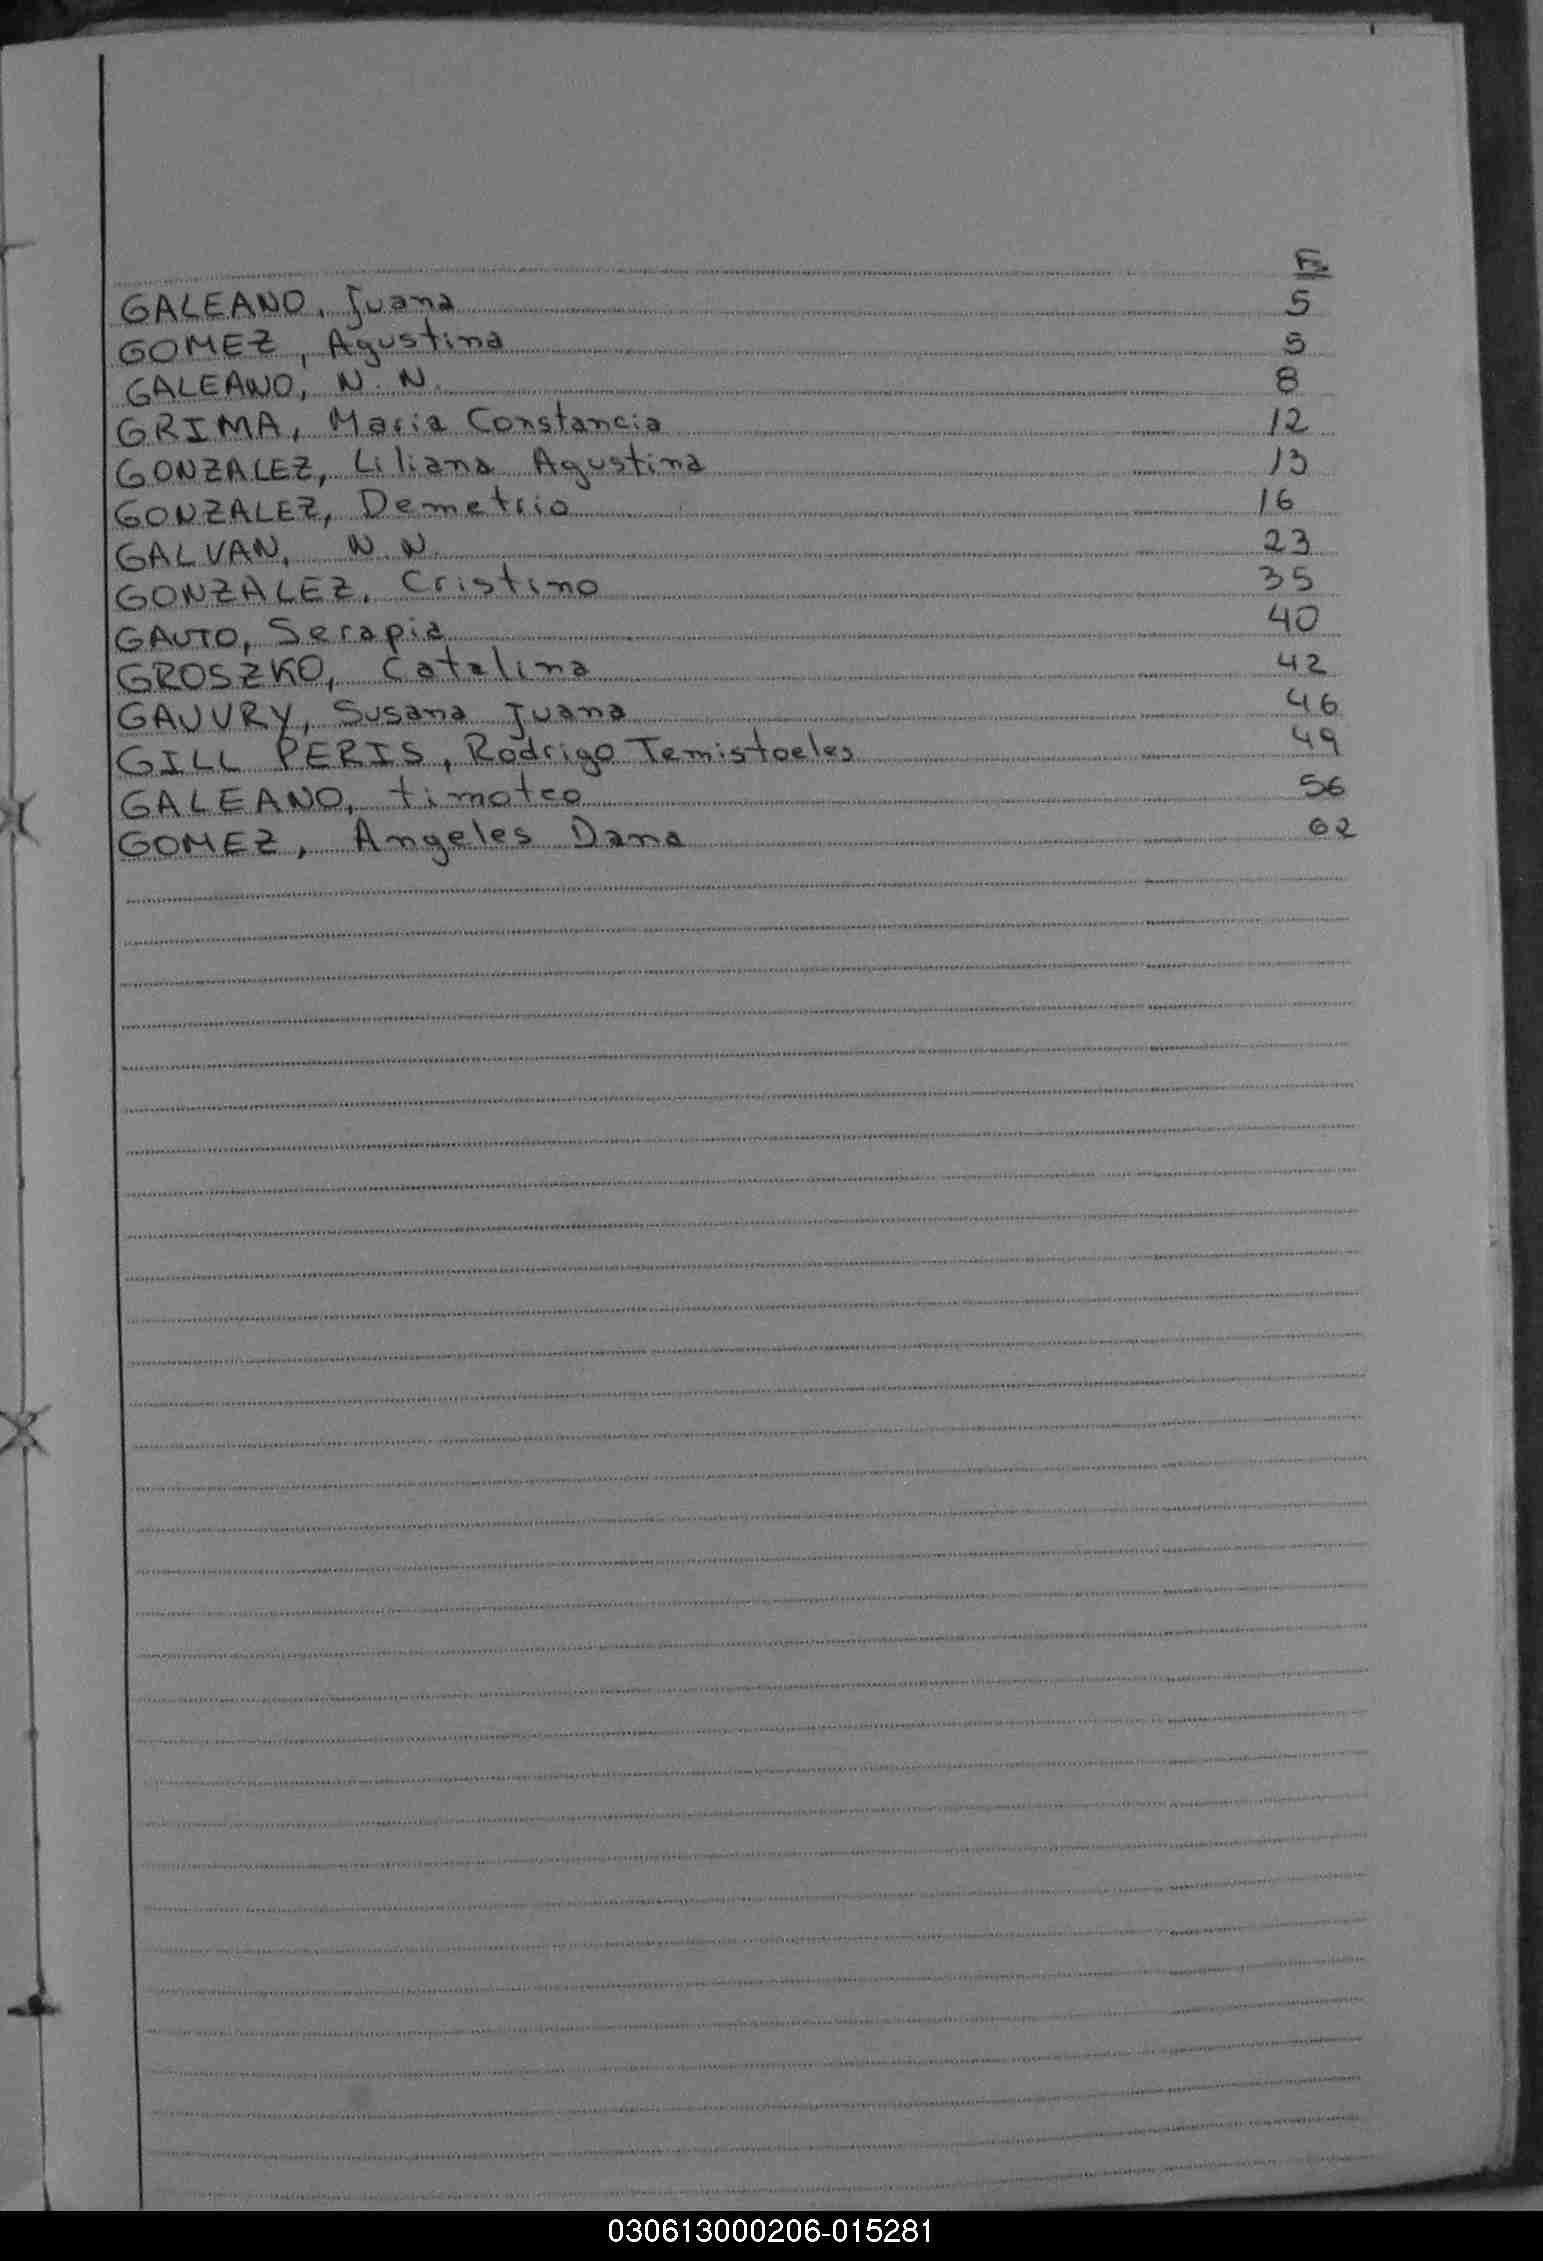 Fo
GALEANO, Juana 5
GOMEZ, Agustina 5
GALEANO, N. N. 8
GRIMA, Maria Constancia 12
GONZALEZ, Liliana Agustina 13
GONZALEZ, Demetrio 16
GALVAN, N. N. 23
GONZALEZ, Cristino 35
GAUTO, Serapia 40
GROSZKO, Catalina 42
GAUVRY, Susana Juana 46
GILL PERIS, Rodrigo Temistocles 49
GALEANO, timoteo 56
GOMEZ, Angeles Dana 62
030613000206-015281